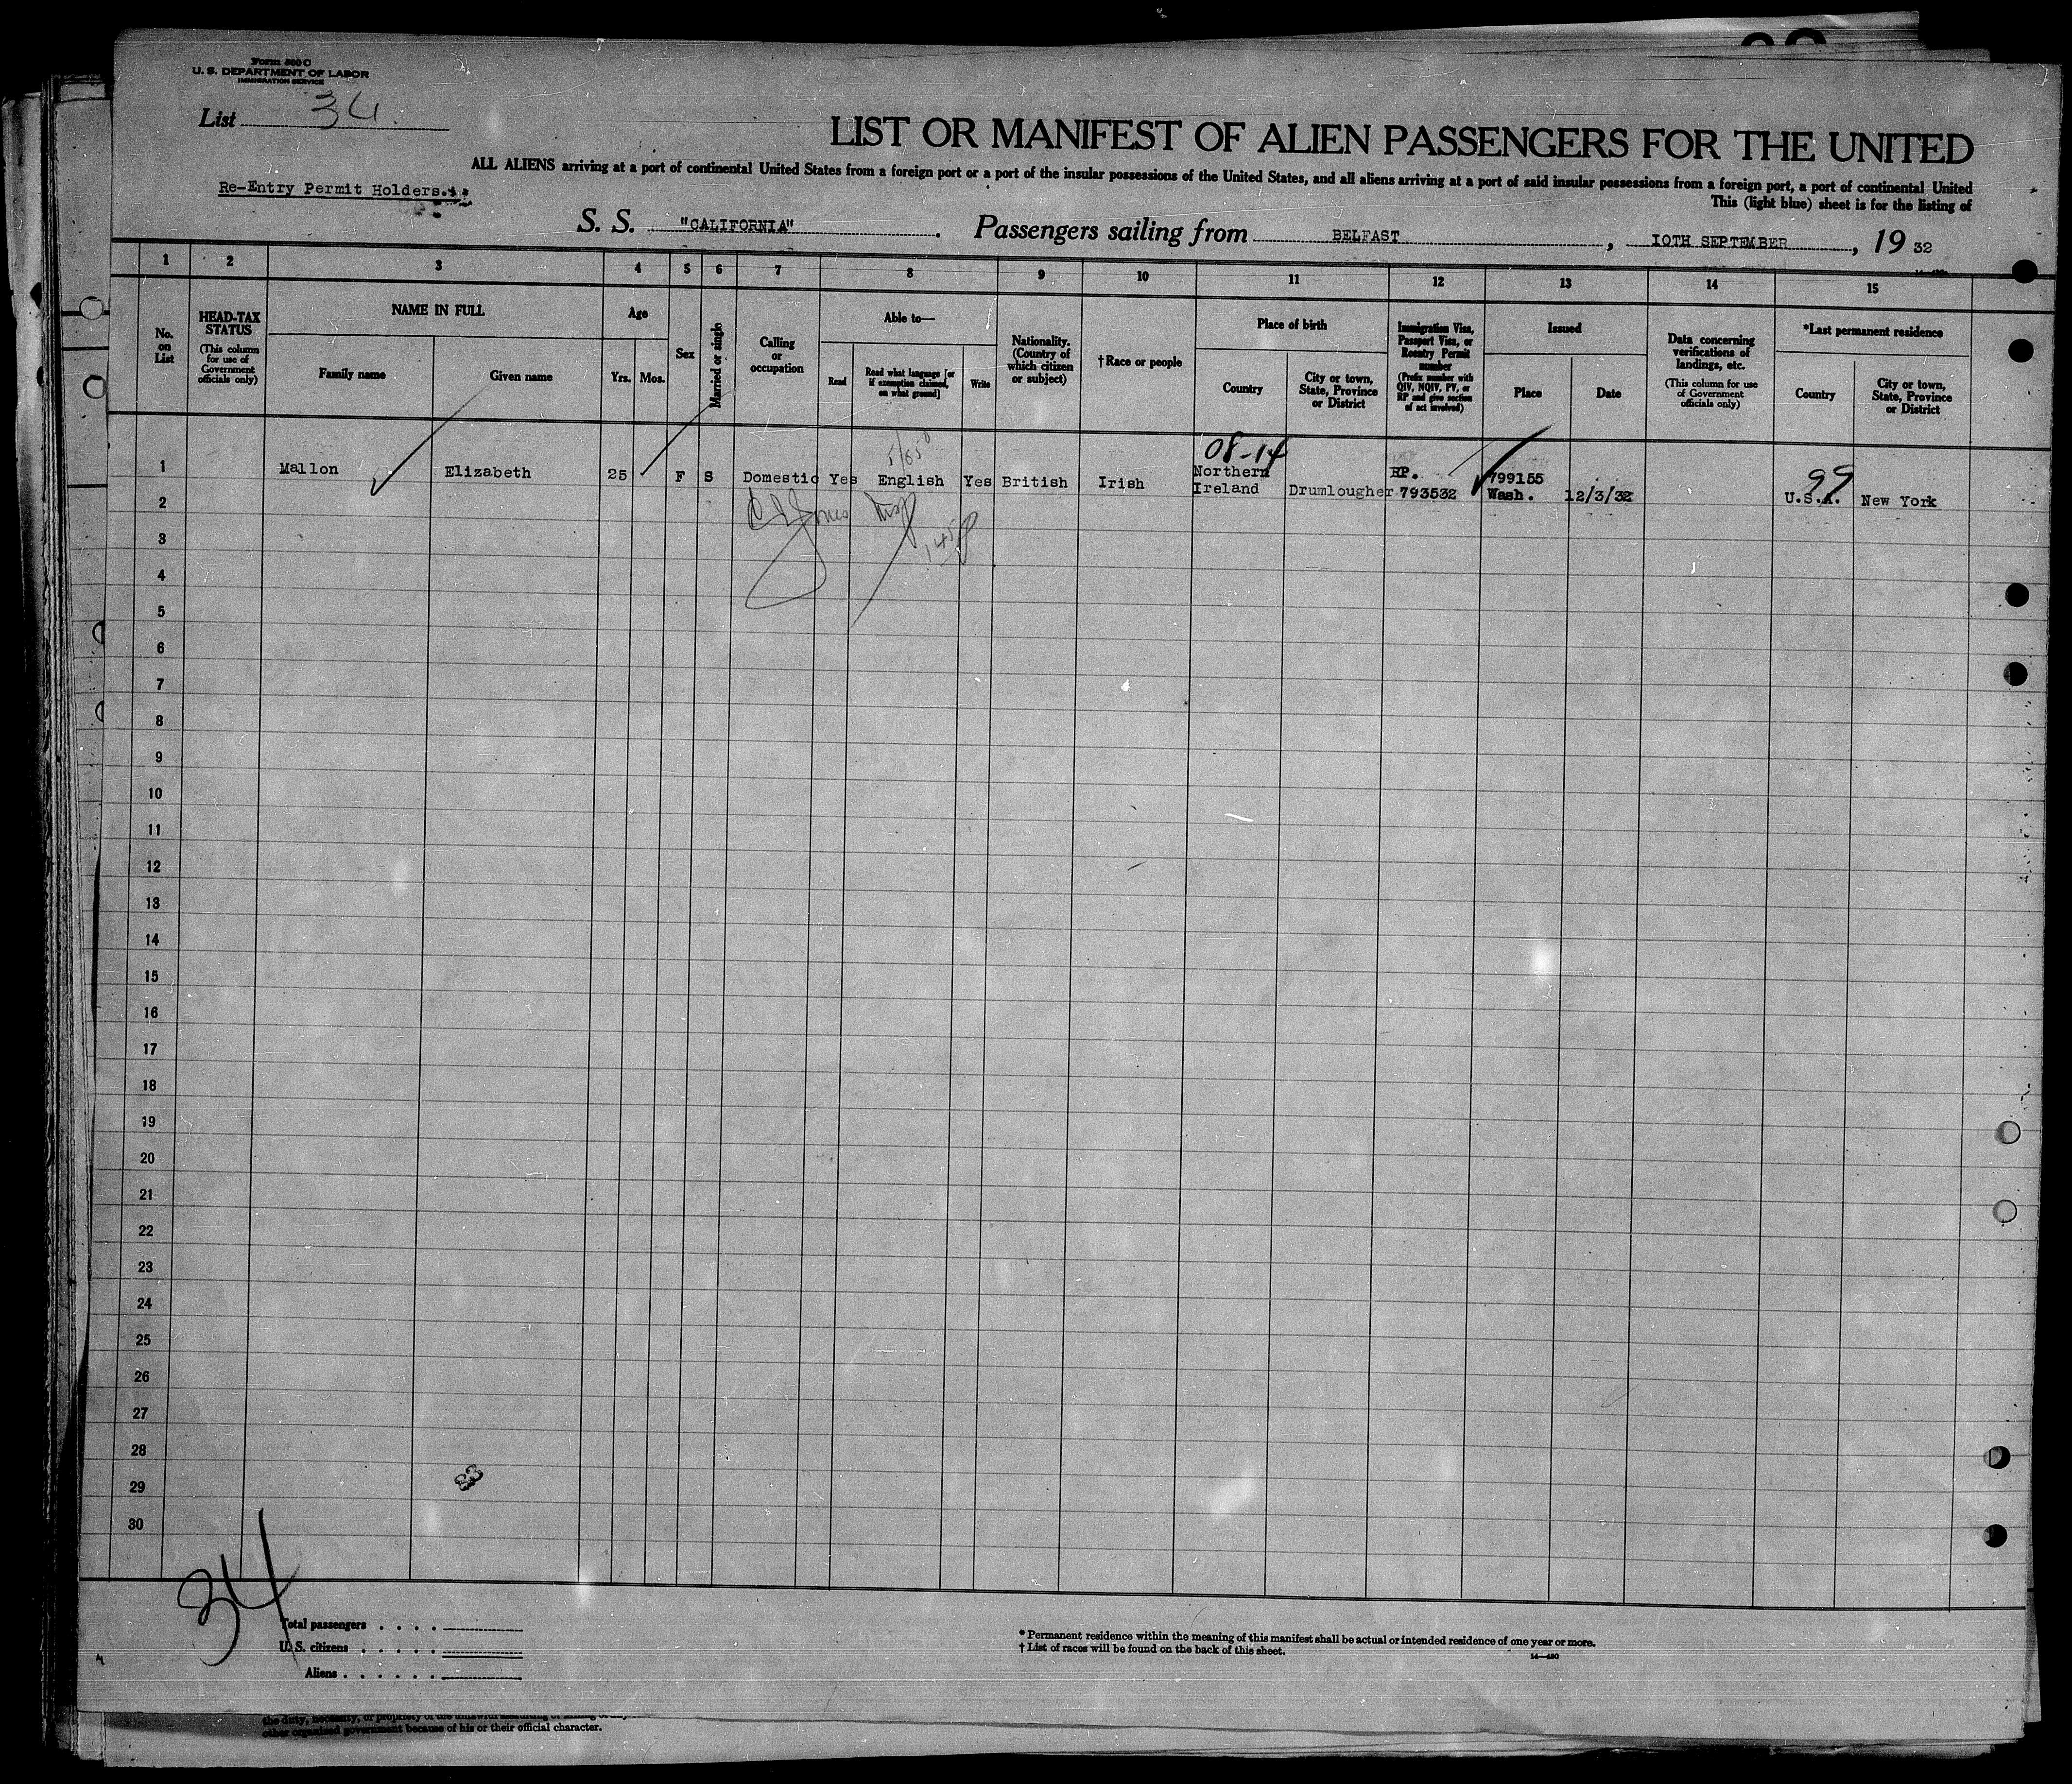 Form 500 C
U. S. DEPARTMENT OF LABOR
IMMIGRATION SERVICE
List 34.
LIST OR MANIFEST OF ALIEN PASSENGERS FOR THE UNITED
ALL ALIENS arriving at a port of continental United States from a foreign port or a port of the insular possessions of the United States, and all aliens arriving at a port of said insular possessions from a foreign port, a port of continental United
Re-Entry Permit Holders.
This (light blue) sheet is for the listing of
S. S. "CALIFORNIA". Passengers sailing from BELFAST, 10TH SEPTEMBER, 19 32
1 2 3 4 5 6 7 8 9 10 11 12 13 14 15
No. on List
HEAD-TAX STATUS
(This column for use of Government officials only)
NAME IN FULL
Family name
Given name
Age
Yrs. Mos.
Sex
Married or single
Calling or occupation
Able to—
Read
Read what language [or if exemption claimed, on what ground]
Write
Nationality. (Country of which citizen or subject)
†Race or people
Place of birth
Country
City or town, State, Province or District
Immigration Visa, Passport Visa, or Reentry Permit number
(Prefix number with QIV, NQIV, PV, or RP and give section of act involved)
Issued
Place
Date
Data concerning verifications of landings, etc.
(This column for use of Government officials only)
*Last permanent residence
Country
City or town, State, Province or District
08-14
99
1 Mallon Elizabeth 25 F S Domestic Yes English Yes British Irish Northern Ireland Drumlougher RP. 793532 799155 Wash. 12/3/32 U.S.A. New York
2
3
4
5
6
7
8
9
10
11
12
13
14
15
16
17
18
19
20
21
22
23
24
25
26
27
28
29
30
83
34
Total passengers
U. S. citizens
Aliens
* Permanent residence within the meaning of this manifest shall be actual or intended residence of one year or more.
† List of races will be found on the back of this sheet.
14—430
other organized government because of his or their official character.